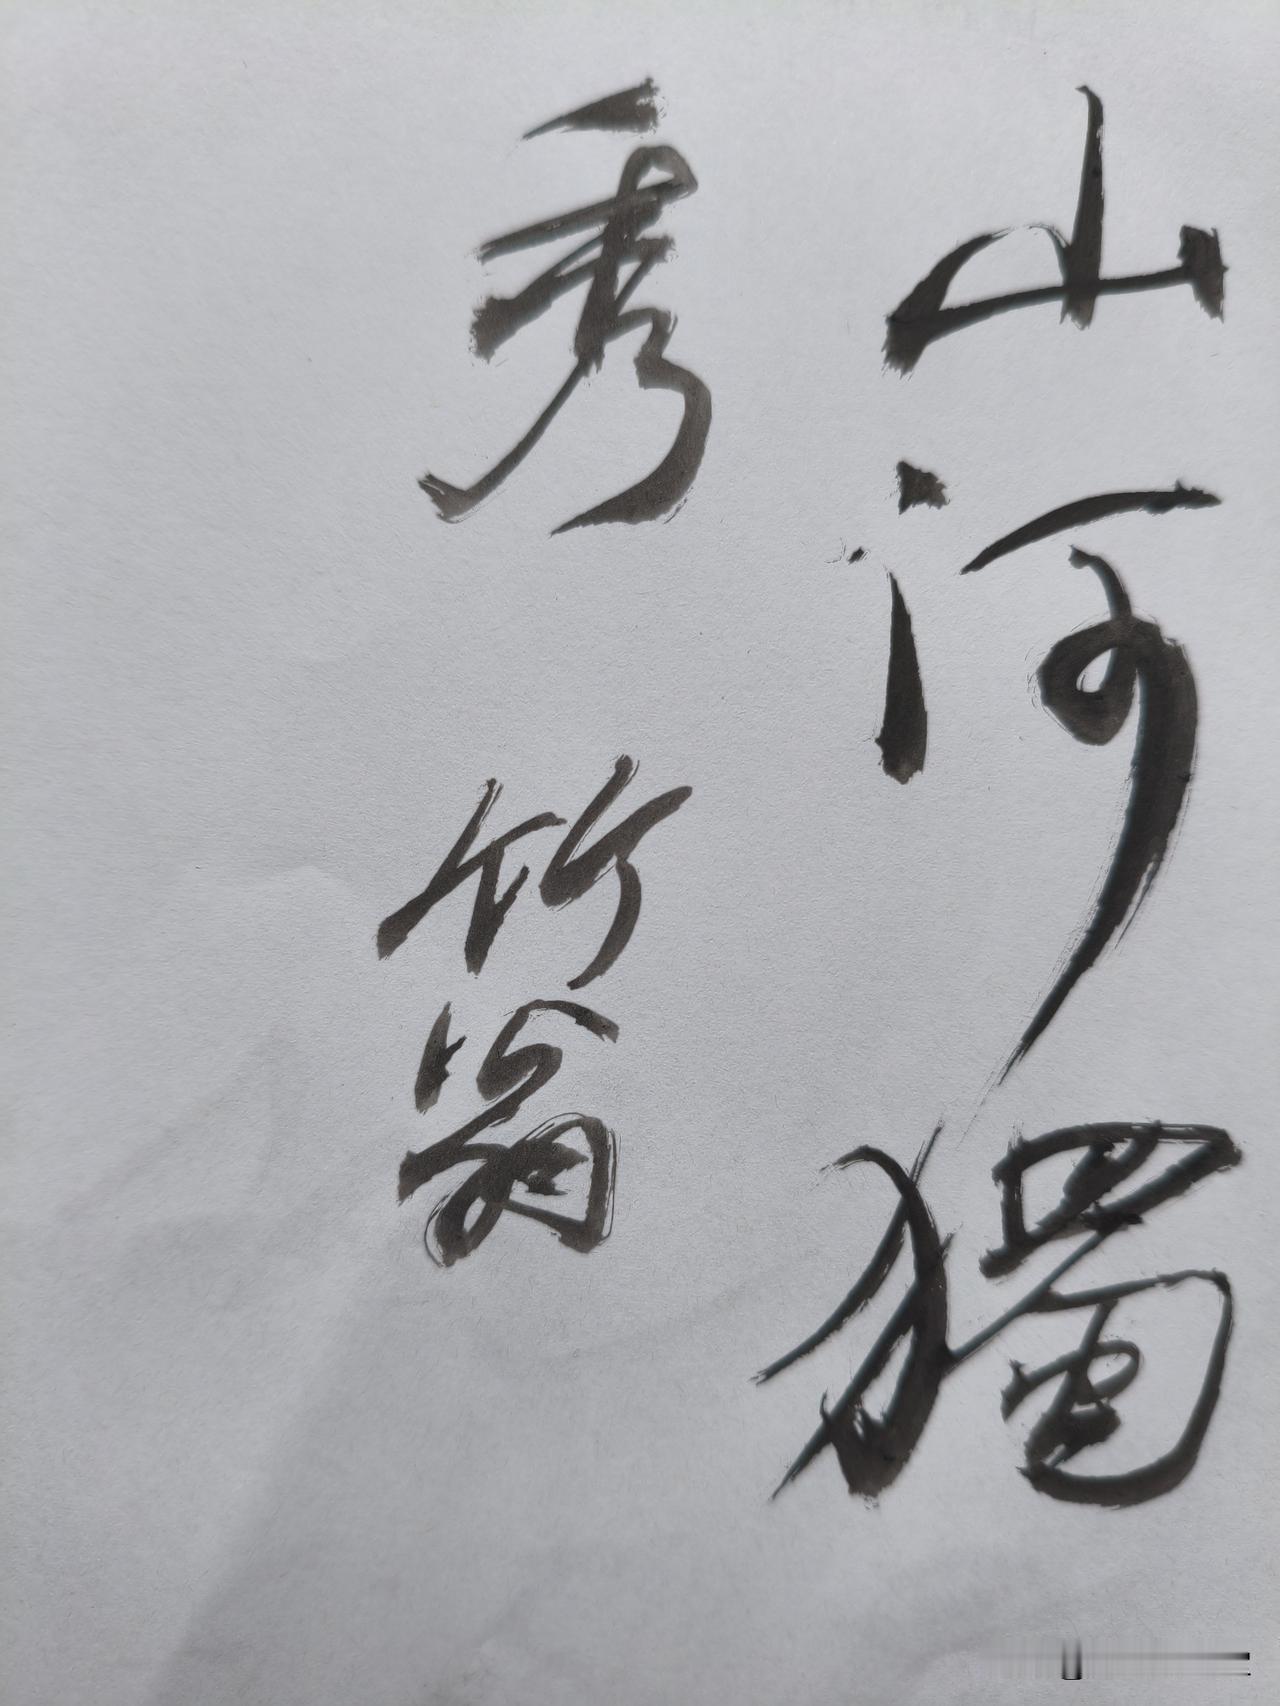 山河獨
秀 竹翁